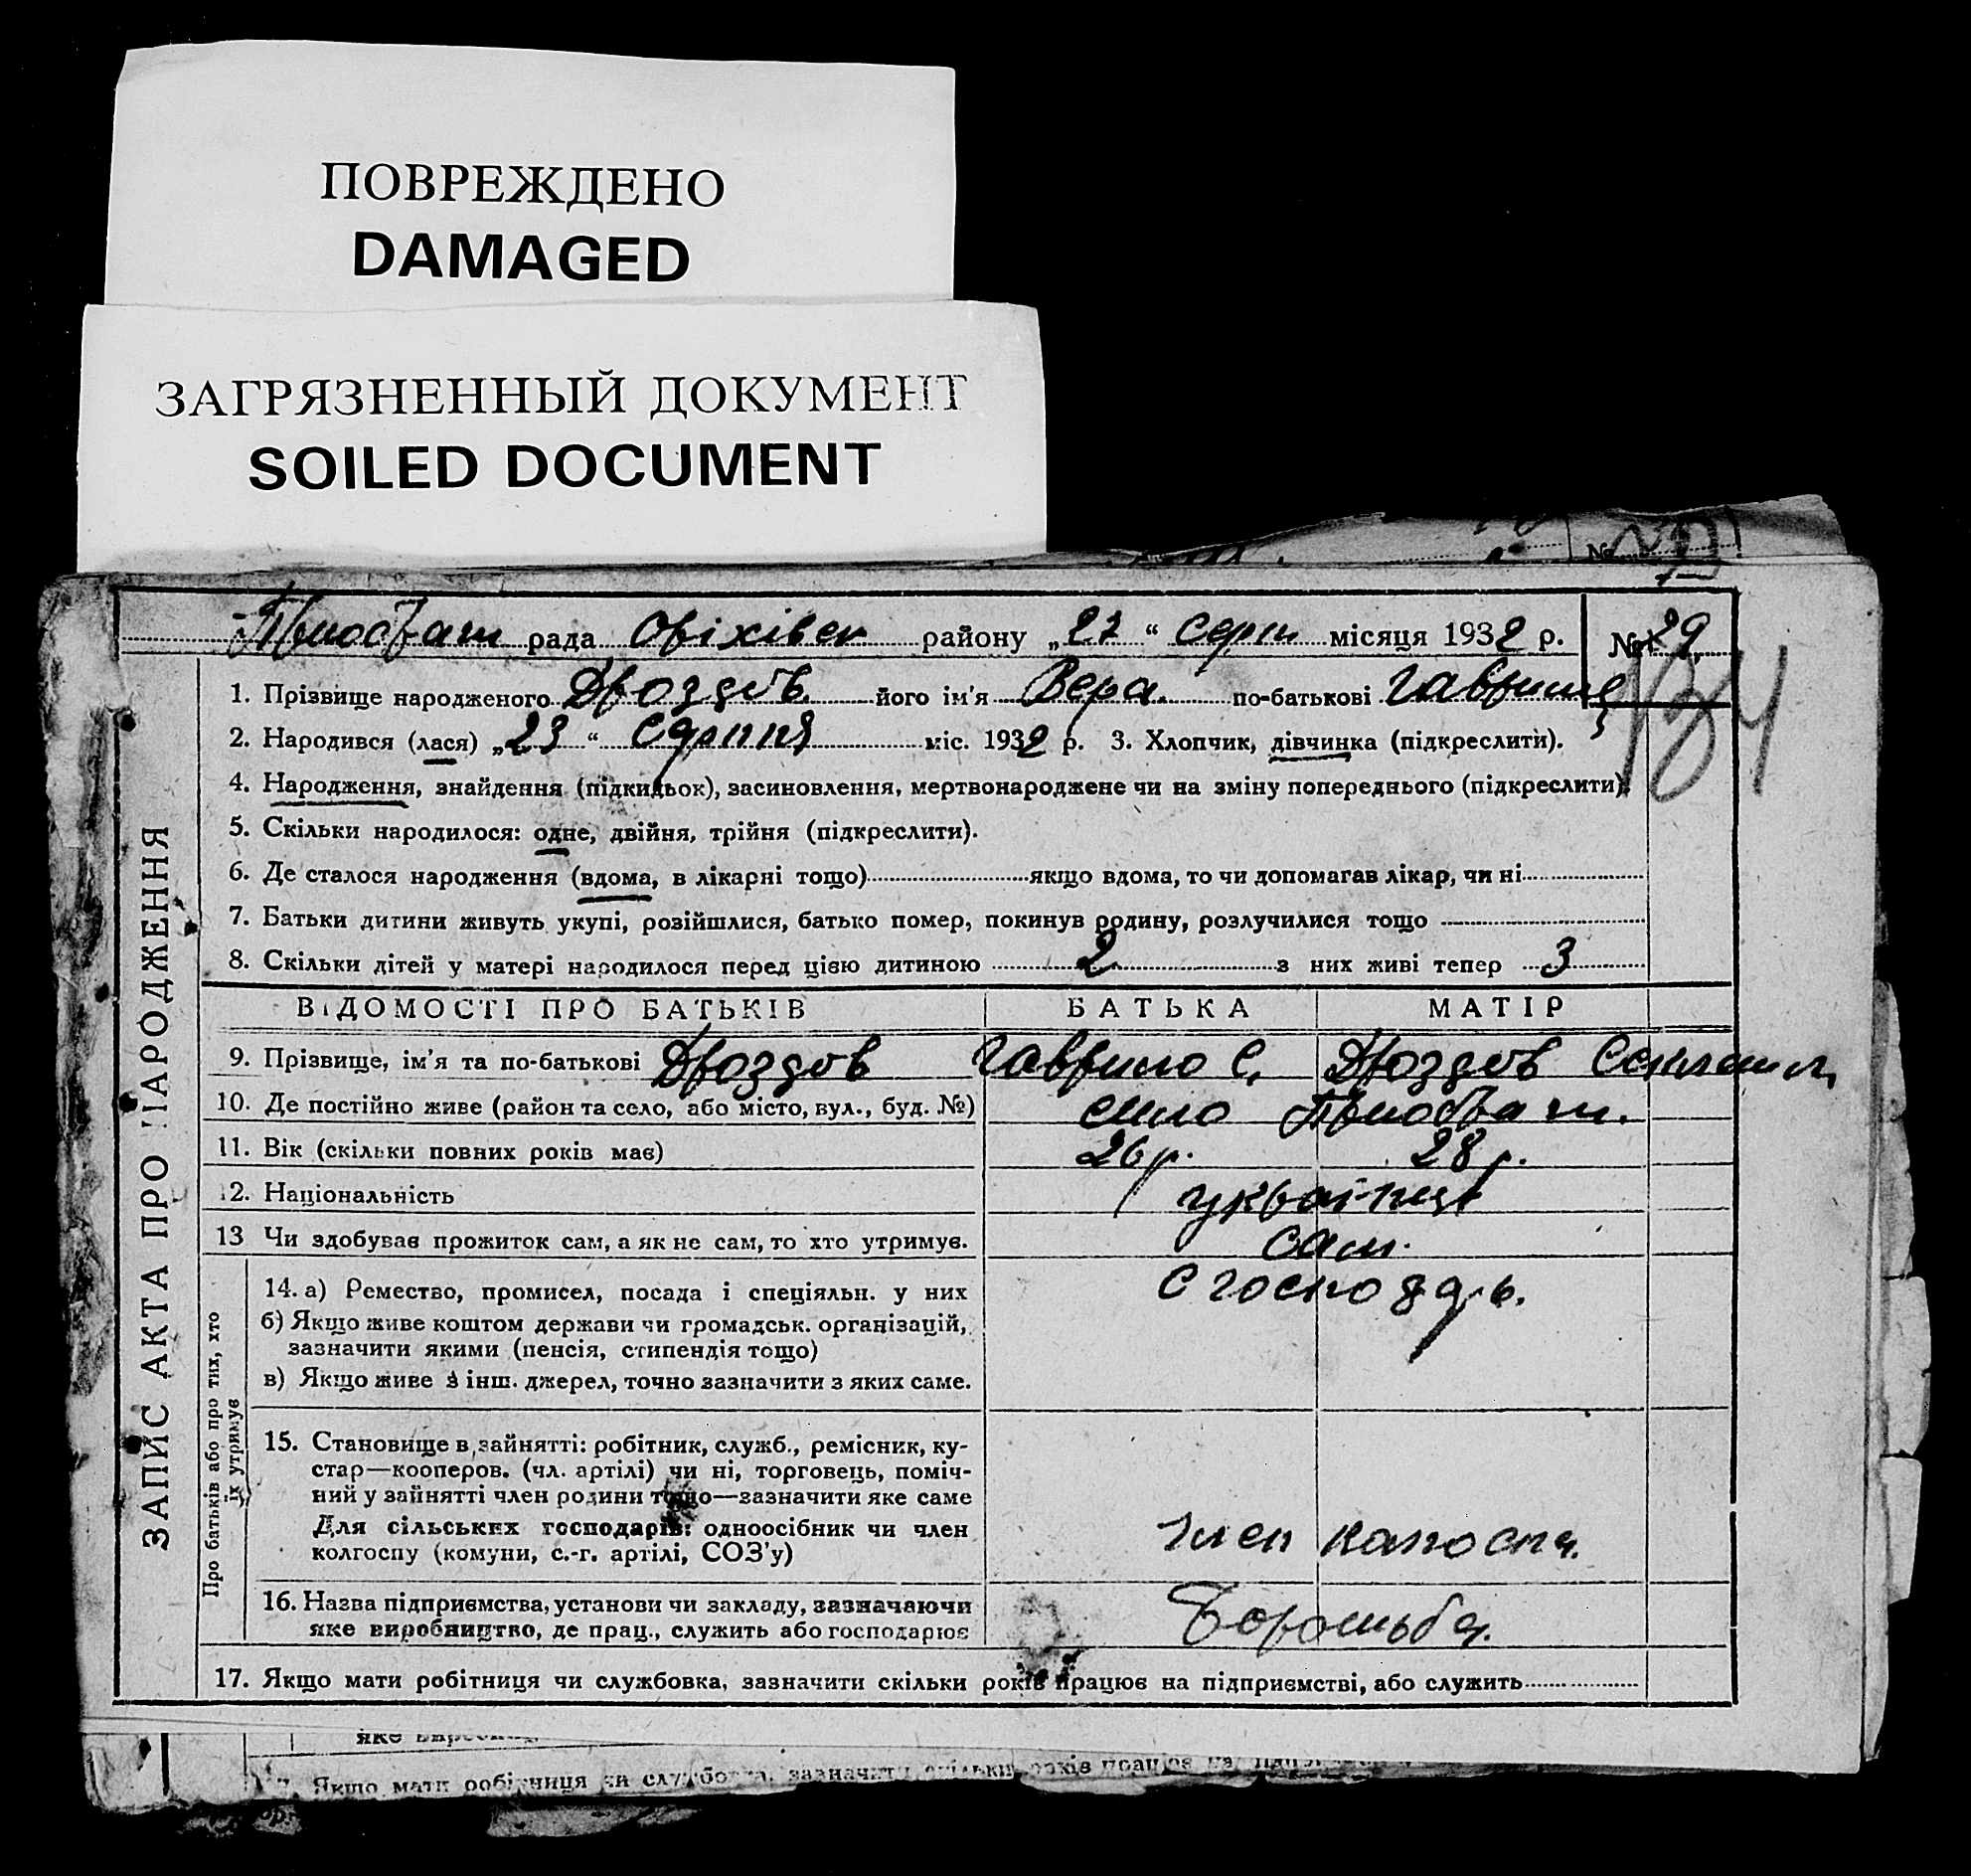 ПОВРЕЖДЕНО
DAMAGED
ЗАГРЯЗНЕННЫЙ ДОКУМЕНТ
SOILED DOCUMENT
рада Оріхівск району „27“ Серпн місяця 1932 р. № 29
134
1. Прізвище народженого Дроздов його ім'я Вера. по-батькові
2. Народився (лася) „23“ Серпня міс. 1932 р. 3. Хлопчик, дівчинка (підкреслити).
4. Народження, знайдення (підкидьок), засиновлення, мертвонароджене чи на зміну попереднього (підкреслити).
5. Скільки народилося: одне, двійня, трійня (підкреслити).
6. Де сталося народження (вдома, в лікарні тощо) якщо вдома, то чи допомагав лікар, чи ні
7. Батьки дитини живуть укупі, розійшлися, батько помер, покинув родину, розлучилися тощо
8. Скільки дітей у матері народилося перед цією дитиною 2 з них живі тепер 3
ВІДОМОСТІ ПРО БАТЬКІВ БАТЬКА МАТІР
9. Прізвище, ім'я та по-батькові Дроздов Гаврило С. Дроздов
10. Де постійно живе (район та село, або місто, вул., буд. №) село
11. Вік (скільки повних років має) 26 р. 28 р.
12. Національність українці
13 Чи здобував прожиток сам, а як не сам, то хто утримує. Сам.
14. а) Ремество, промисел, посада і спеціяльн. у них С господарь.
б) Якщо живе коштом держави чи громадськ. організацій,
зазначити якими (пенсія, стипендія тощо)
в) Якщо живе з інш. джерел, точно зазначити з яких саме.
15. Становище в зайнятті: робітник, служб., ремісник, ку-
стар—кооперов. (чл. артілі) чи ні, торговець, поміч-
ний у зайнятті член родини тощо—зазначити яке саме
Для сільських господарів: одноосібник чи член
колгоспу (комуни, с.-г. артілі, СОЗ'у) Член
16. Назва підприємства, установи чи закладу, зазначаючи
яке виробництво, де прац., служить або господарює
17. Якщо мати робітниця чи службовка, зазначити скільки років працює на підприємстві, або служить
ЗАПИС АКТА ПРО НАРОДЖЕННЯ
Про батьків або про тих, хто
їх утримує
Якщо мати робітниця чи службовка, зазначити скільки років працює на